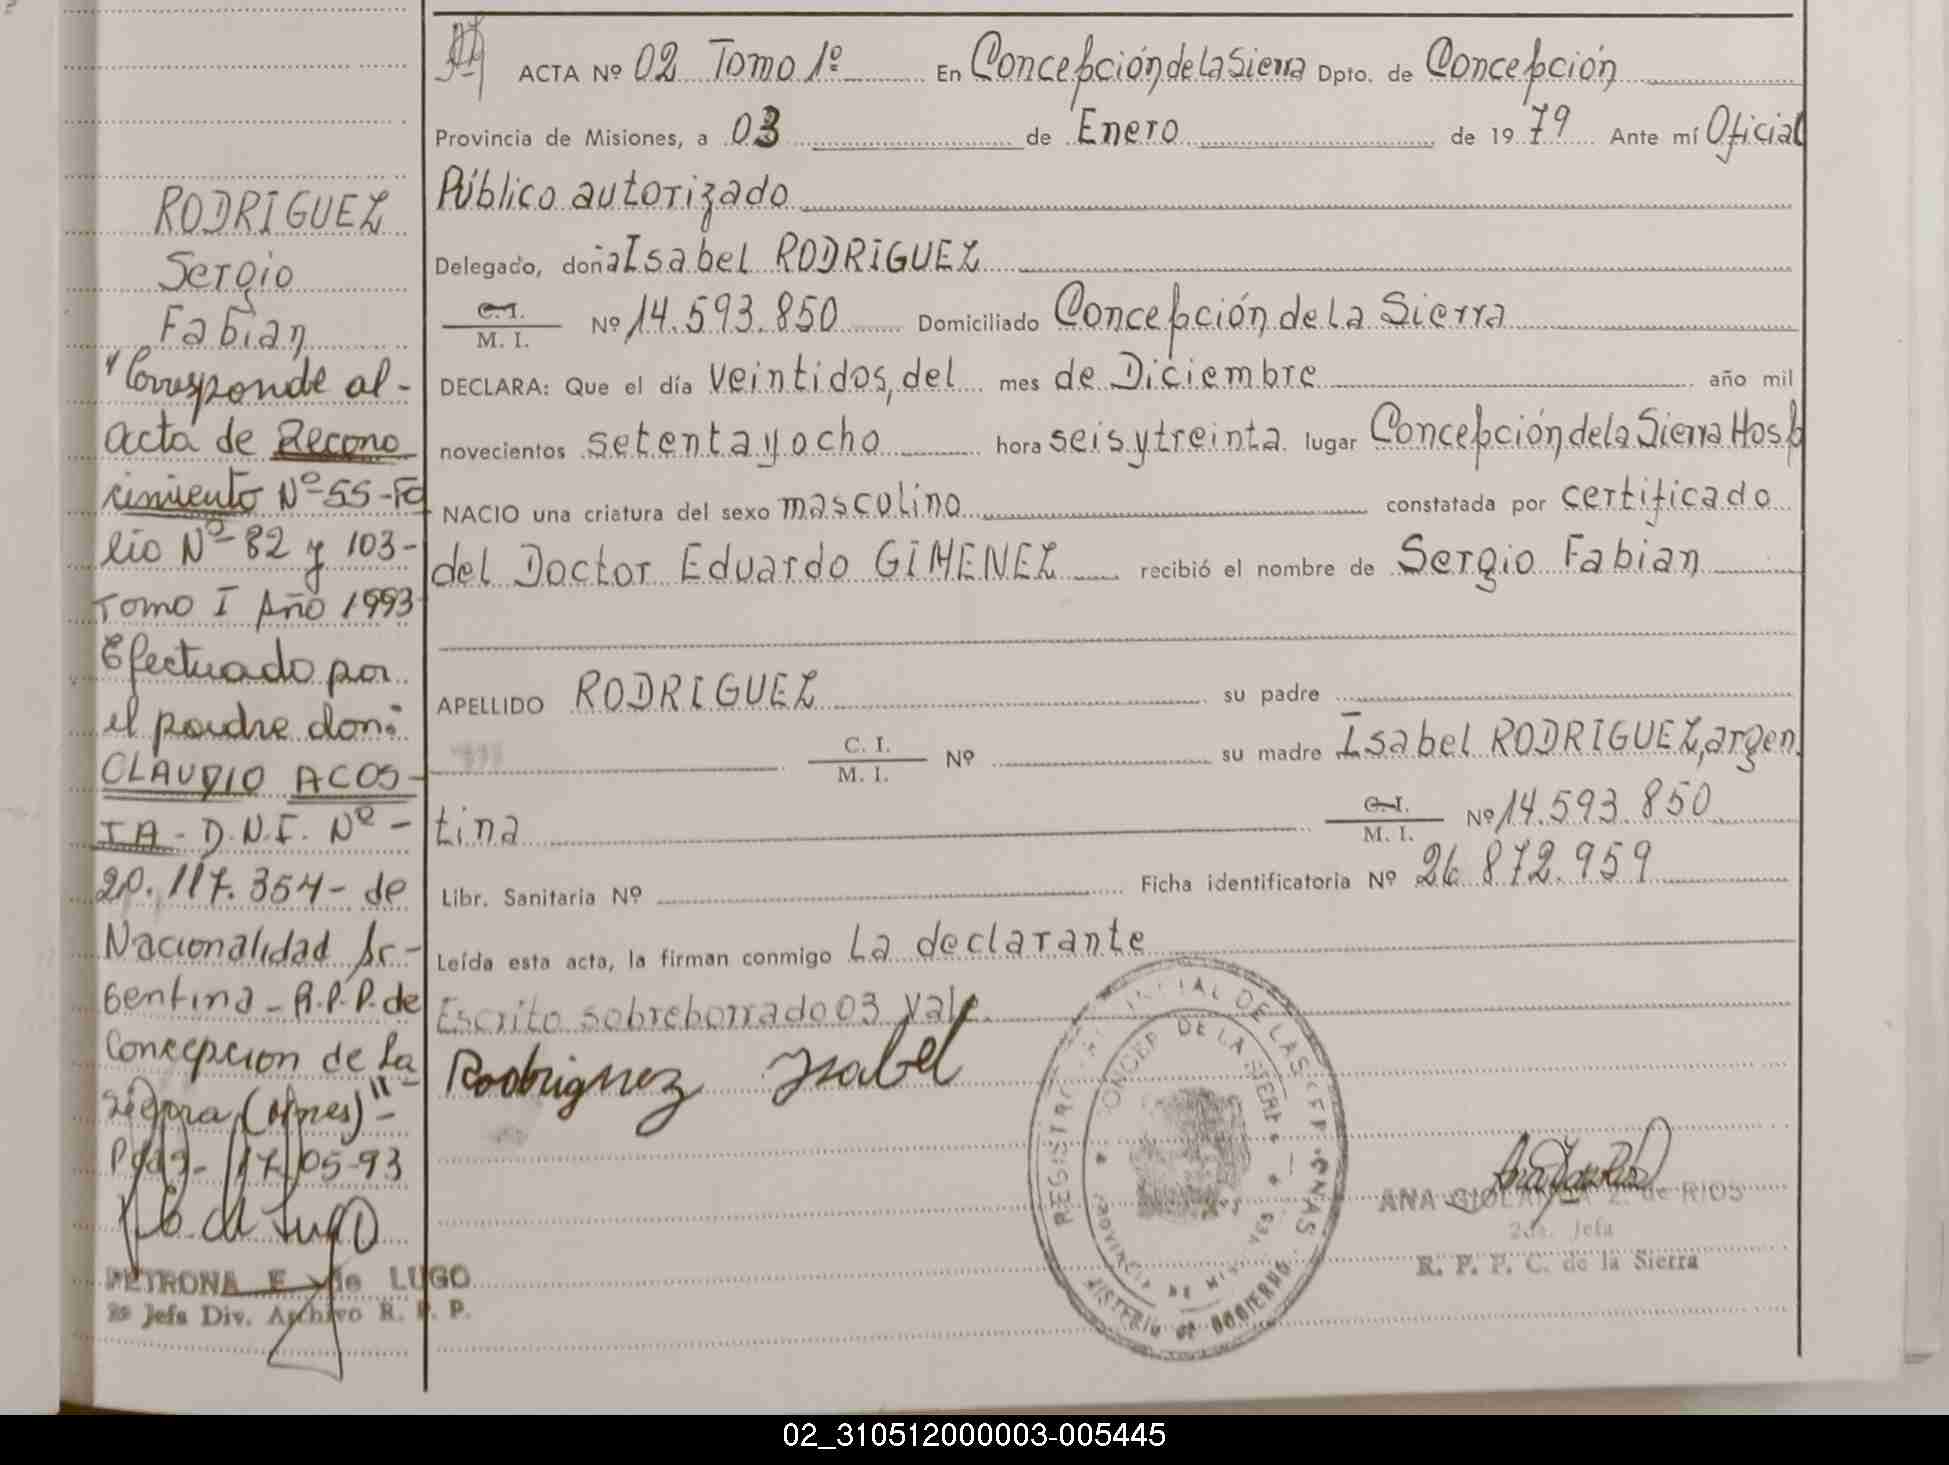 ACTA Nº 02 Tomo 1º En Concepción de la Sierra Dpto. de Concepción
Provincia de Misiones, a 03 de Enero de 1979 Ante mí Oficial
Público autorizado
Delegado, doña Isabel RODRIGUEZ
C. I.
M. I. Nº 14.593.850 Domiciliado Concepción de La Sierra
DECLARA: Que el día veintidos, del mes de Diciembre año mil
novecientos setenta y ocho hora seis y treinta lugar Concepción de la Sierra Hosp
NACIO una criatura del sexo masculino constatada por certificado
del Doctor Eduardo GIMENEZ recibió el nombre de Sergio Fabian
APELLIDO RODRIGUEZ su padre
C. I.
M. I. Nº su madre Isabel RODRIGUEZ, argen
tina C. I.
M. I. Nº 14.593.850
Libr. Sanitaria Nº Ficha identificatoria Nº 26.872.959
Leída esta acta, la firman conmigo La declarante
Escrito sobreborrado 03 Vale.
Rodriguez Isabel
RODRIGUEZ
Sergio
Fabian
"Corresponde al-
acta de Recono
cimiento Nº 55-Fo
lio Nº 82 y 103-
Tomo I Año 1993
Efectuado por
el padre don:
CLAUDIO ACOS-
TA - D.N.I. Nº -
20.117.354 - de
Nacionalidad Ar-
gentina - R.P.P. de
Concepcion de La
Sierra (Mnes)"-
Pdas - 17-05-93
PETRONA E. de LUGO
Jefa Div. Archivo R. P. P.
REGISTRO PROVINCIAL DE LAS PERSONAS
CONCEP. DE LA SIERRA
PROVINCIA DE MISIONES
MINISTERIO DE GOBIERNO
ANA de RIOS
2da. Jefa
R. P. P. C. de la Sierra
02_310512000003-005445